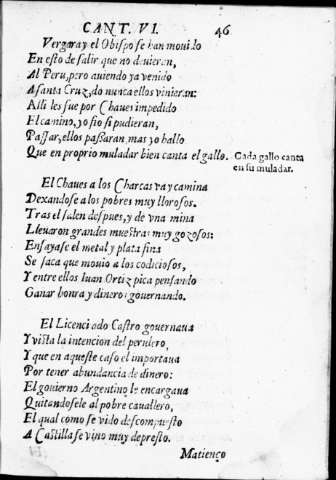 CANT. VI. 46
Vergara y el Obispo se han mouido
En esto de salir que no deuieran,
Al Peru, pero auiendo ya venido
A santa Cruz, do nunca ellos vinieran:
Alli les fue por Chaues impedido
El camino, yo fio si pudieran,
Passar, ellos passaran, mas yo hallo
Que en proprio muladar bien canta el gallo.
Cada gallo canta
en su muladar.
El Chaues a los Charcas va y camina
Dexandose a los pobres muy llorosos.
Tras el salen despues, y de vna mina
Lleuaron grandes muestras muy gozosos:
Ensayase el metal y plata fina
Se saca que mouio a los codiciosos,
Y entre ellos Iuan Ortiz pica pensando
Ganar honra y dinero gouernando.
El Licenciado Castro gouernaua
Y vista la intencion del perulero,
Y que en aqueste caso el importaua
Por tener abundancia de dinero:
El gouierno Argentino le encargaua
Quitandosele al pobre cauallero,
El qual como se vido descompuesto
A Castilla se vino muy depresto.
Matienço